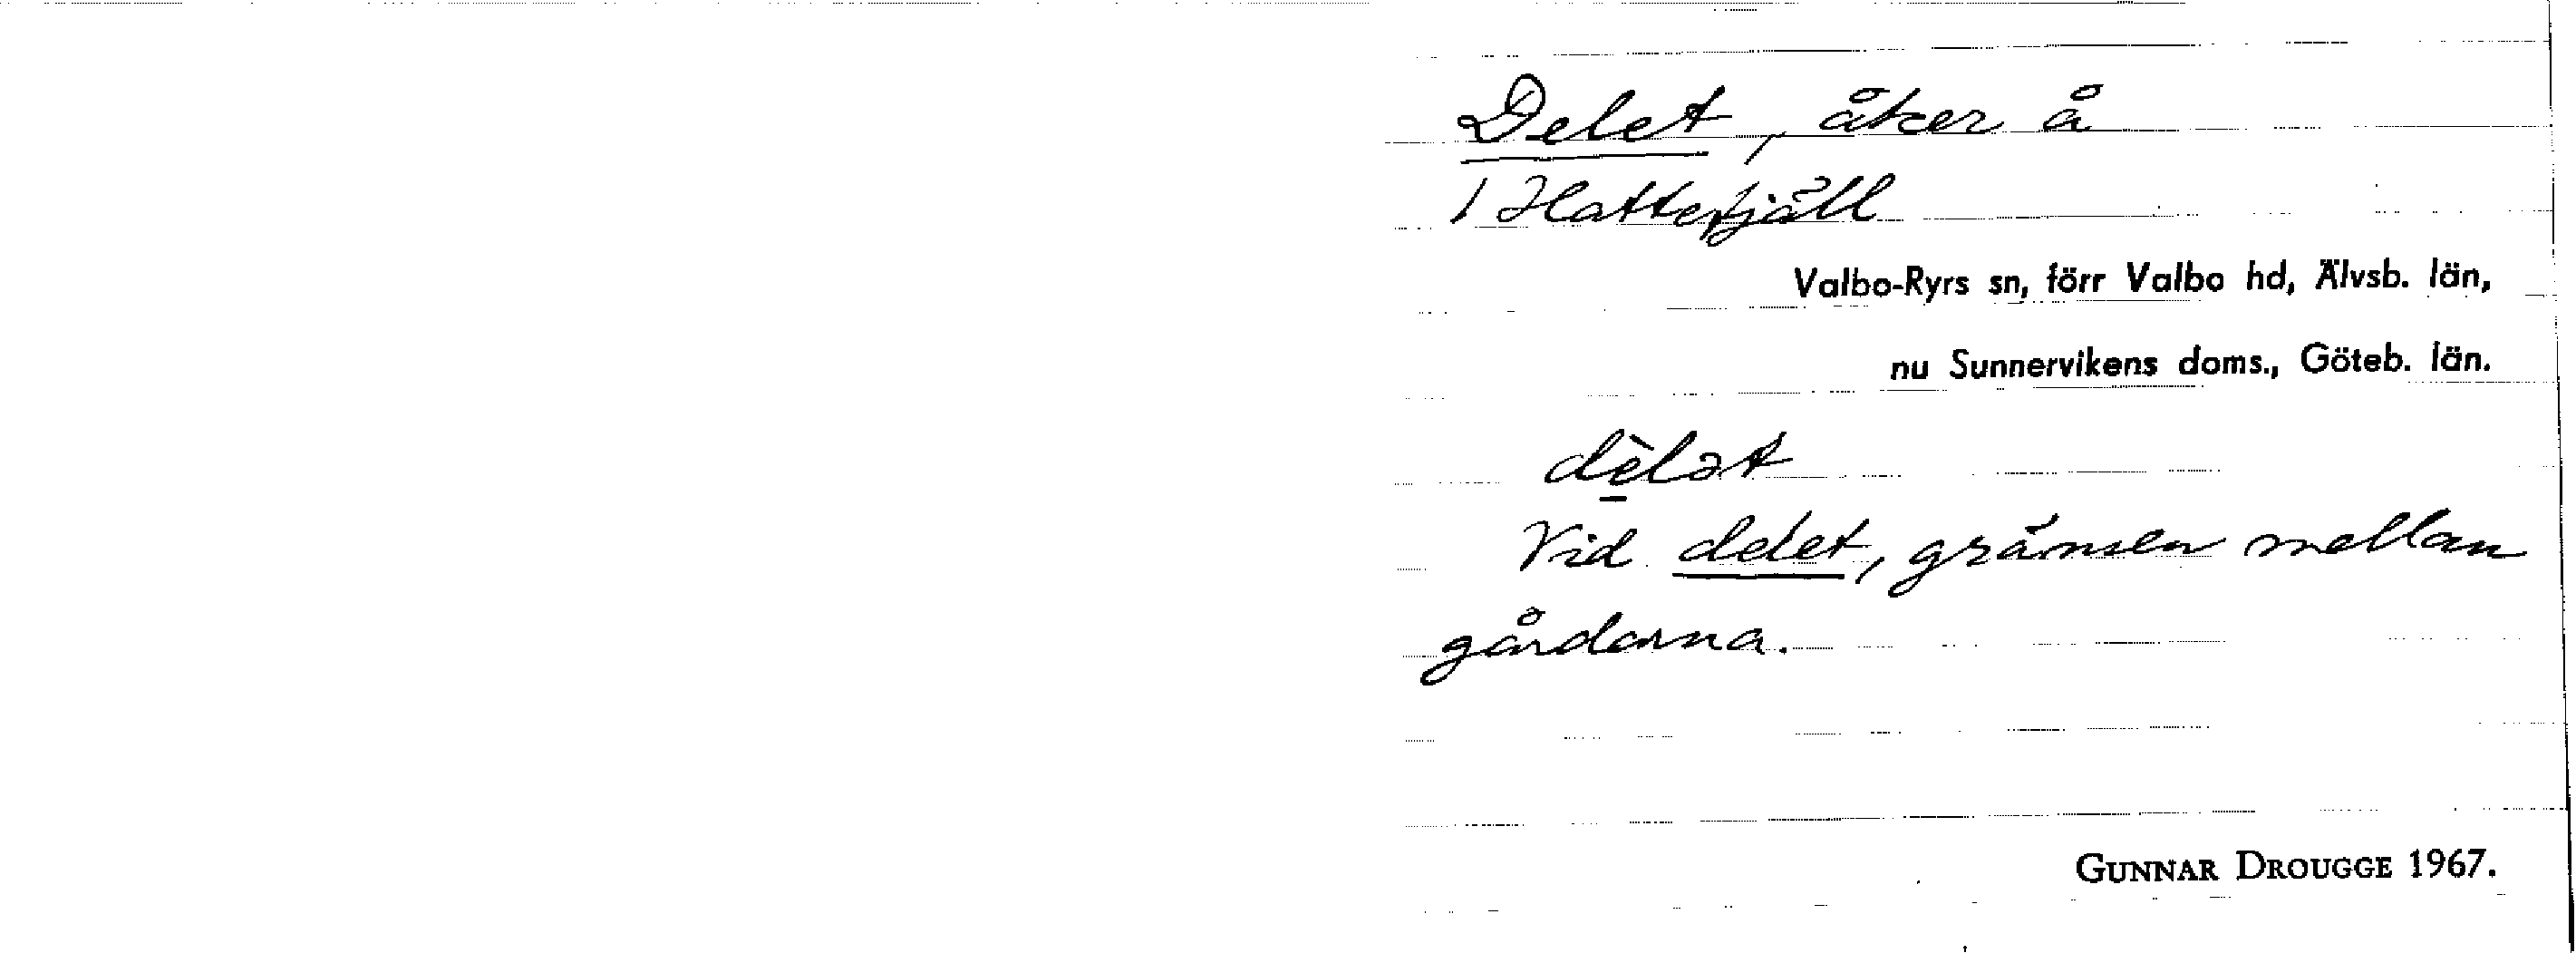 Delet, åker å
1 Hattefjäll
Valbo-Ryrs sn, förr Valbo hd, Älvsb. län,
nu Sunnervikens doms., Göteb. län.
dè̠lət
Vid delet, gränsen mellan
gårdarna.
GUNNAR DROUGGE 1967.